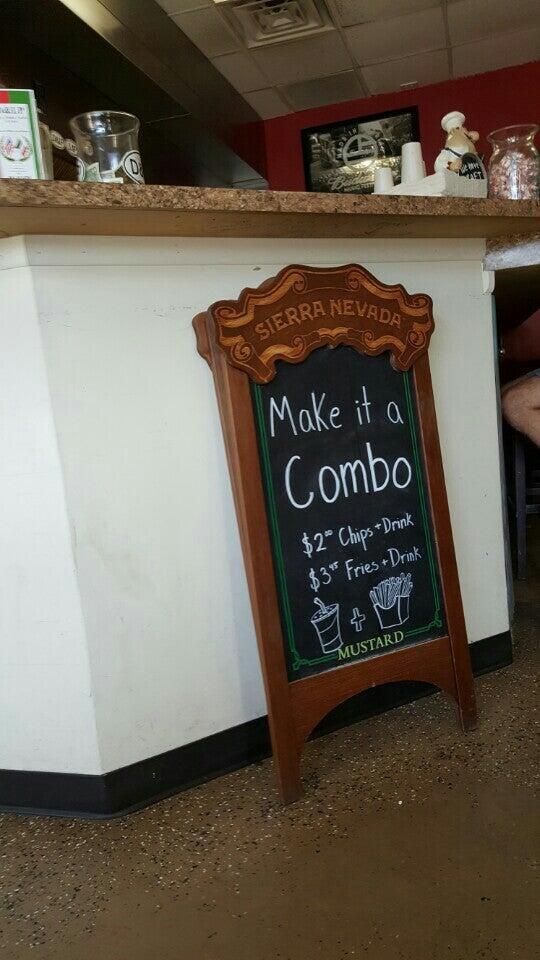 SIERRA NEVADA
Make it a
Combo
$2.00 Chips + Drink
Fries + Drink
+
MUSTARD